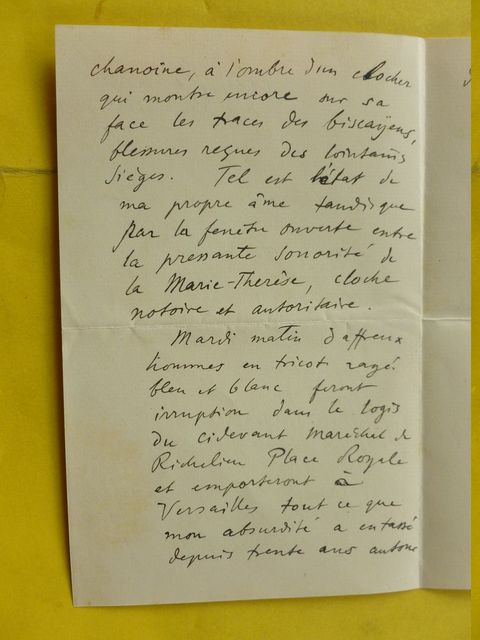 chanoine, à l'ombre d'un clocher
qui montre encore sur sa
face les traces des biscayens,
blessures reçues des lointains
sièges. Tel est l'état de
ma propre âme tandis que
par la fenêtre ouverte entre
la pressante sonorité de
la Marie-Therèse, cloche
notoire et autoritaire.
Mardi matin d'affreux
hommes en tricot rayé
bleu et blanc feront
irruption dans le logis
du cidevant Maréchal de
Richelieu Place Royale
et emporteront à
Versailles tout ce que
mon absurdité a entassé
depuis trente ans autour